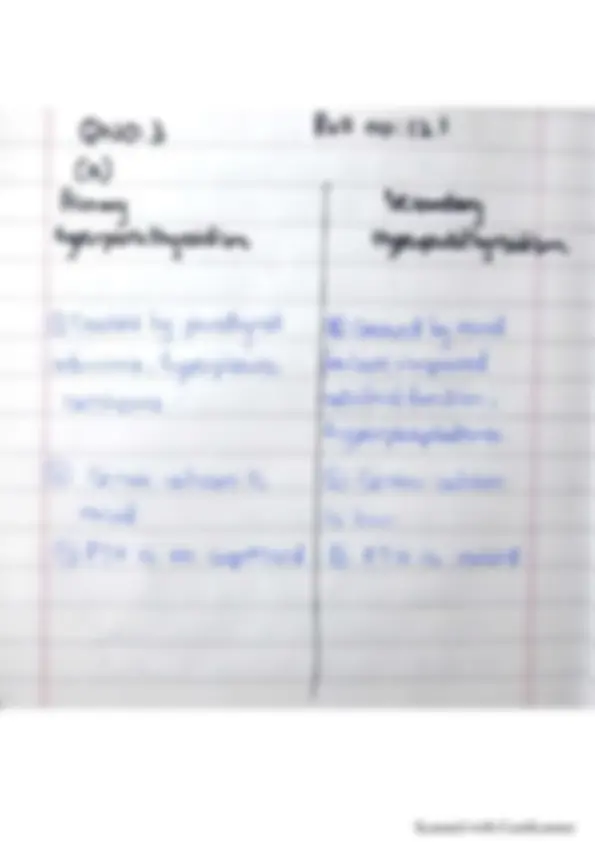 QNO.2
Roll no:121
(a)
Primary
Hyperparathyroidism
Secondary
Hyperparathyroidism
Caused by parathyroid
adenoma, hyperplasia,
carcinoma
Caused by renal
failure, impaired
function,
Serum calcium is
raised
Serum calcium
is low
PTH is not suppressed
PTH is raised
Scanned with CamScanner